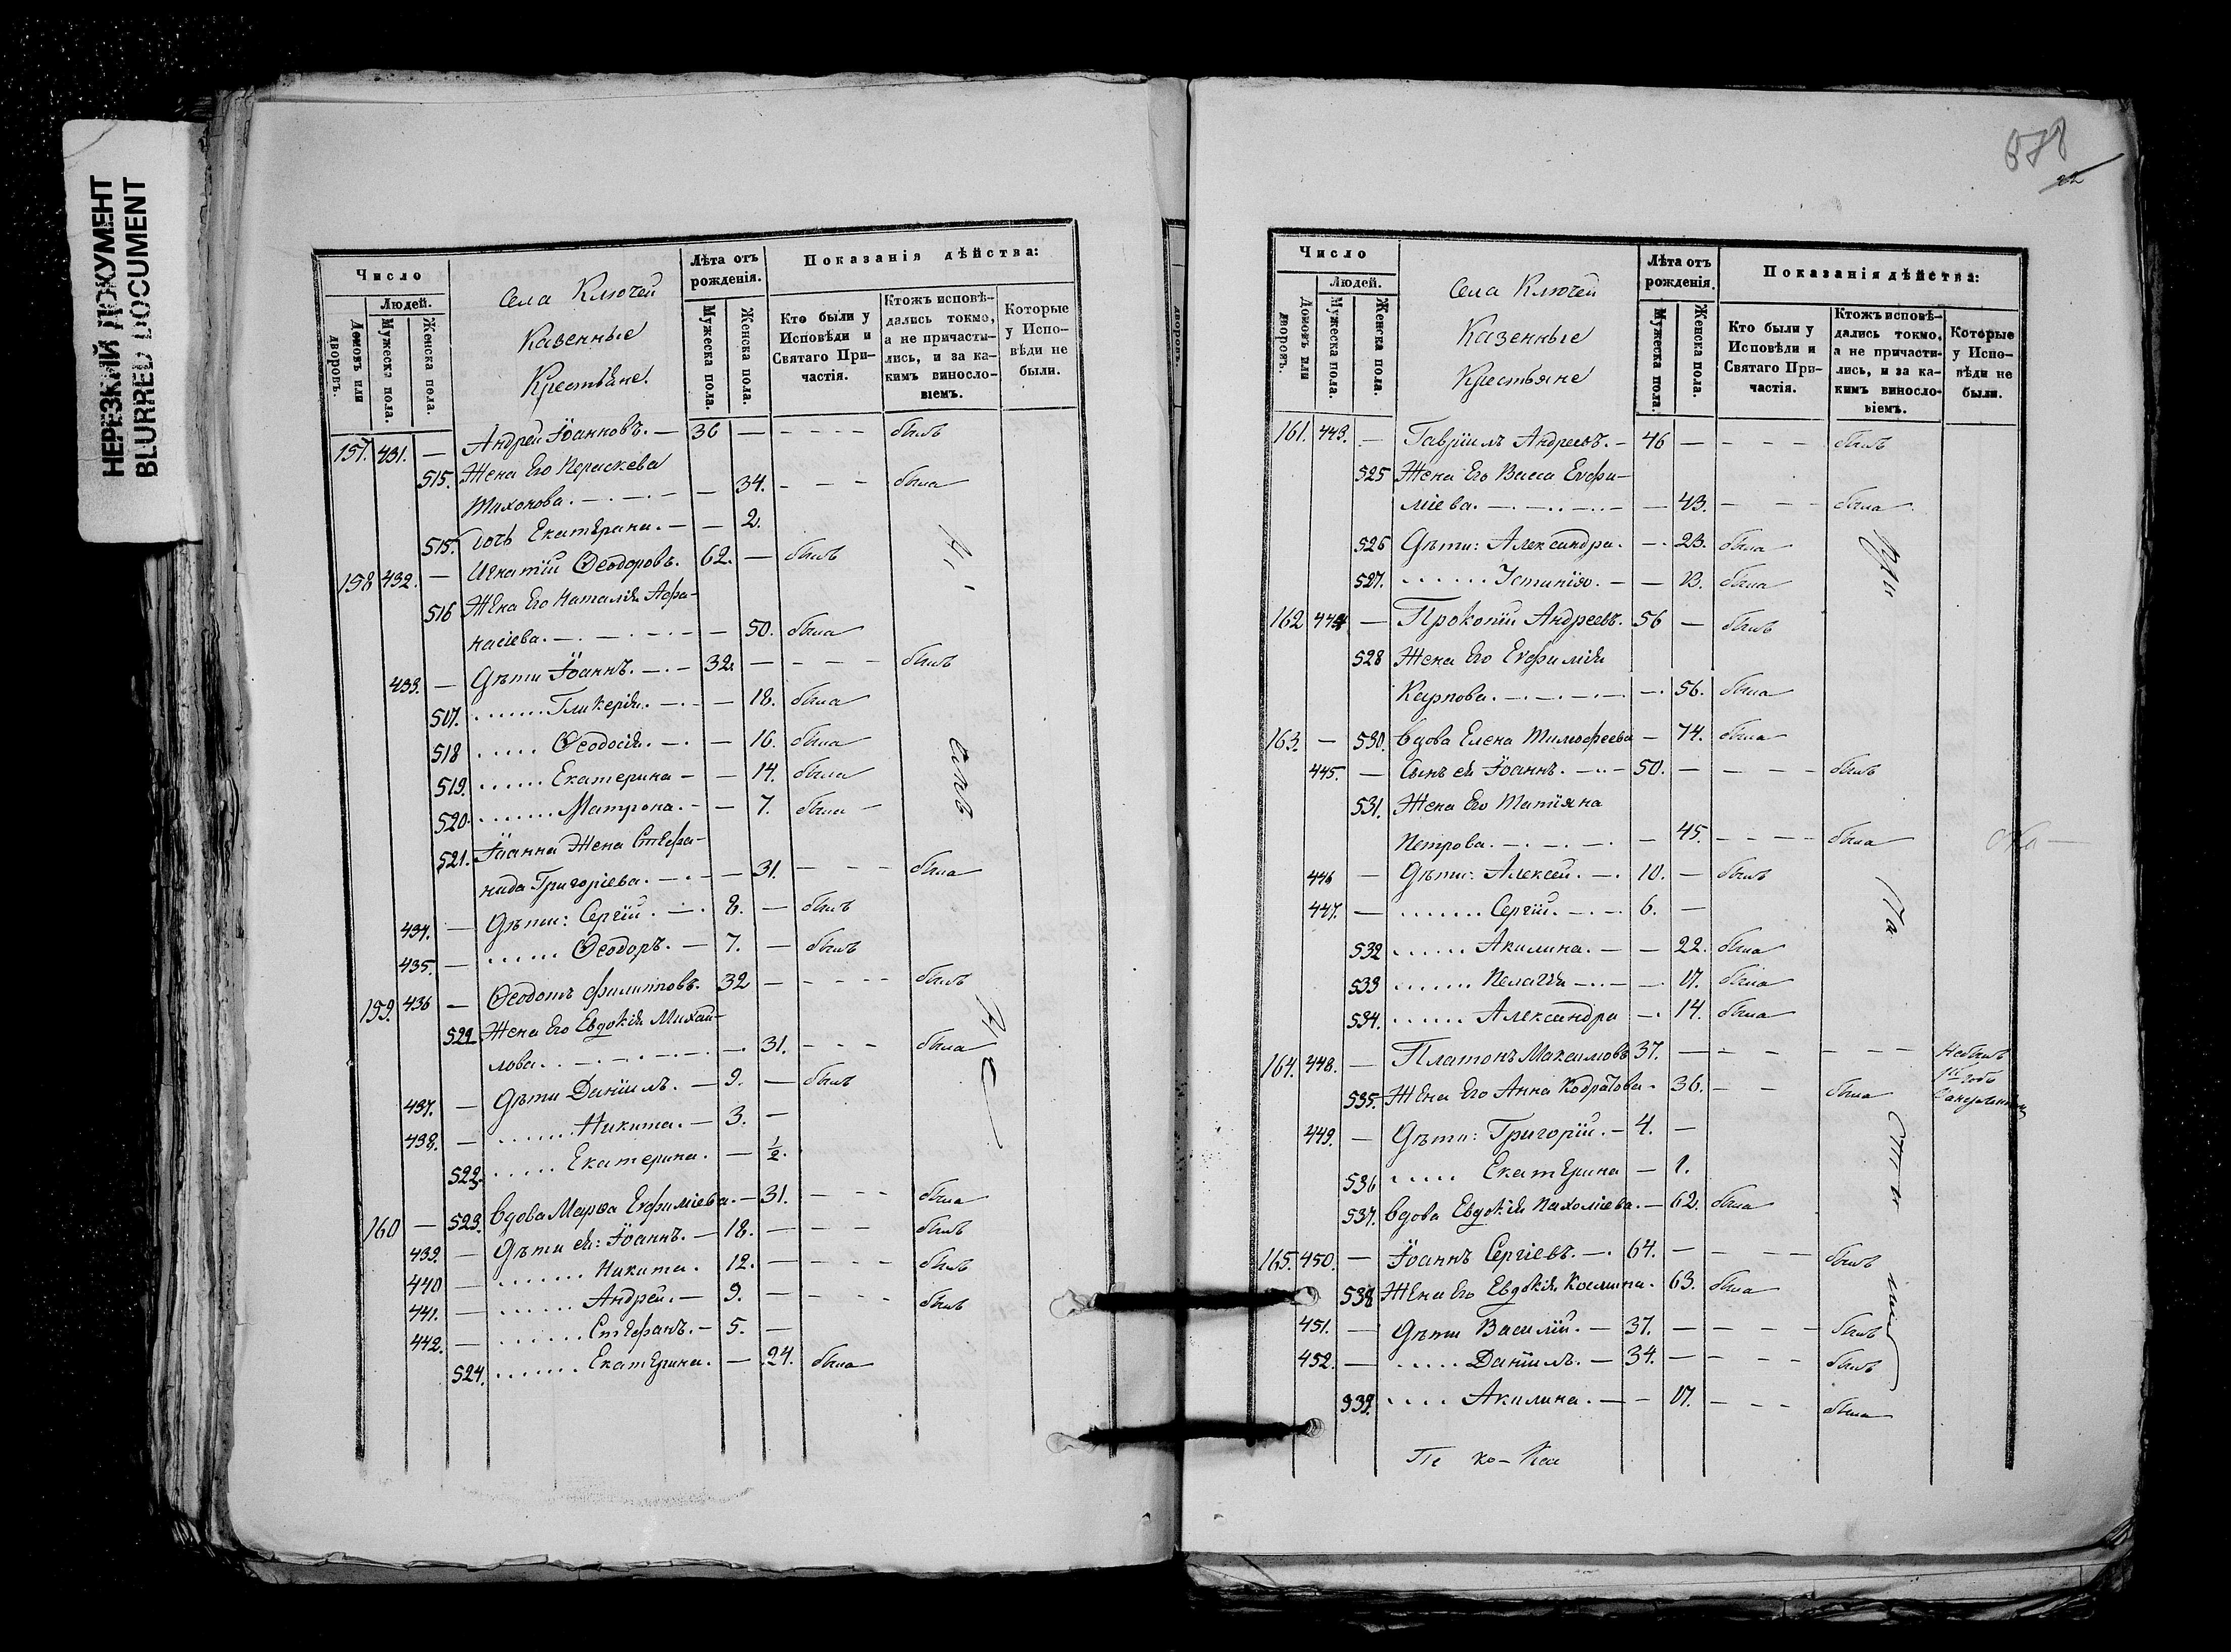 НЕРЕЗКИЙ ДОКУМЕНТ
BLURRED DOCUMENT
Число
Людей.
Домовъ или дворовъ.
Мужеска пола.
Женска пола.
Села Ключей
Казенные
Крестьяне.
Лѣта отъ рожденія.
Мужеска пола.
Женска пола.
Показанія дѣйства:
Кто были у Исповѣди и Святаго Причастія.
Ктожъ исповѣдались токмо, а не причастились, и за какимъ винословіемъ.
Которые у Исповѣди не были.
157. 431. — Андрей Іоанновъ. — 36 — — - - - былъ
515. Жена Его Параскева
Тихонова. — . — . — — 34. - - - была
515. Дочь Екатерина. — — 2.
158 432. — Игнатій Ѳеодоровъ. 62. — былъ
516 Жена Его Наталія Афа-
насіева. — . — . — . — — 50. была
433. — Дѣти Іоаннъ. — . — 32. — - - - былъ
517. ....... Гликерія. — . — — 18. была
518 ..... Ѳеодосія. — . — 16. была
519. ...... Екатерина — — 14. была
520. ....... Матрона. — — 7. была —
521. Іоанна Жена Стефа-
нида Григоріева. — . — — 31. — - - была
434. — Дѣти: Сергій. — . 8. — былъ
435. — ...... Ѳеодоръ. — 7. — былъ
159. 436 — Ѳеодотъ Филипповъ. 32 — - - - - былъ
522 Жена Его Евдокія Михай-
лова. . — . — . — . — — . 31. - - - была
437. — Дѣти Даніилъ. — 9. — былъ
438. — ....... Никита. — 3. —
522. ..... Екатерина. — ½.
160 — 523. Вдова Марѳа Евфиміева. — 31. — - - была
439. — Дѣти ея: Іоаннъ. — 18. — - - былъ
440 — ........ Никита. 12. — - - - былъ
441. — ...... Андрей. — 9. — - - - былъ
442. — ....... Стефанъ. — 5. —
524. ....... Екатерина. — 24. была
22
Число
Людей.
Домовъ или дворовъ.
Мужеска пола.
Женска пола.
Села Ключей
Казенные
Крестьяне
Лѣта отъ рожденія.
Мужеска пола.
Женска пола.
Показанія дѣйства:
Кто были у Исповѣди и Святаго Причастія.
Ктожъ исповѣдались токмо, а не причастились, и за какимъ винословіемъ.
Которые у Исповѣди не были.
161. 443. — Гавріилъ Андреевъ. — 46 — — - - былъ
525 Жена Его Васса Евфи-
міева. — . — . . — . . — — 43. — - - была
526 Дѣти: Александра. — . 23. была
527. ...... Устинія. — — 13. была
162 444 — Прокопій Андреевъ. 56 — былъ
528 Жена Его Евфимія
Карпова. — . — . — . — — . 56. была
163. — 530. Вдова Елена Тимофеева — 74. была
445. — Сынъ ея Іоаннъ. — . . — 50. — - - - былъ
531. Жена Его Татіяна
Петрова. — . — . — . — 45. - - - - была
446 — Дѣти: Алексей. — . 10. — былъ
447. — ....... Сергій. — . — . 6. —
532 ...... Акилина. — — 22. была
533 ....... Пелагія — . . — — . 17. была
534. ...... Александра — . 14. была
164. 448. — Платонъ Максимовъ 37. — - - - - - Небылъ
535. Жена Его Анна Кодратова. 36. — - была
449. — Дѣти: Григорій. — 4. —
536 ..... Екатерина — 1.
537. Вдова Евдокія Пахоміева. — 62. была
165. 450. — Іоаннъ Сергіевъ. — . 64. — - - - былъ
538 Жена Его Евдокія Космина. 63. была
451. — Дѣти Василій. — 37. — - - - былъ
452. — ..... Даніилъ. — 34. — - - - былъ
539. .... Акилина. — — 17. — - - была